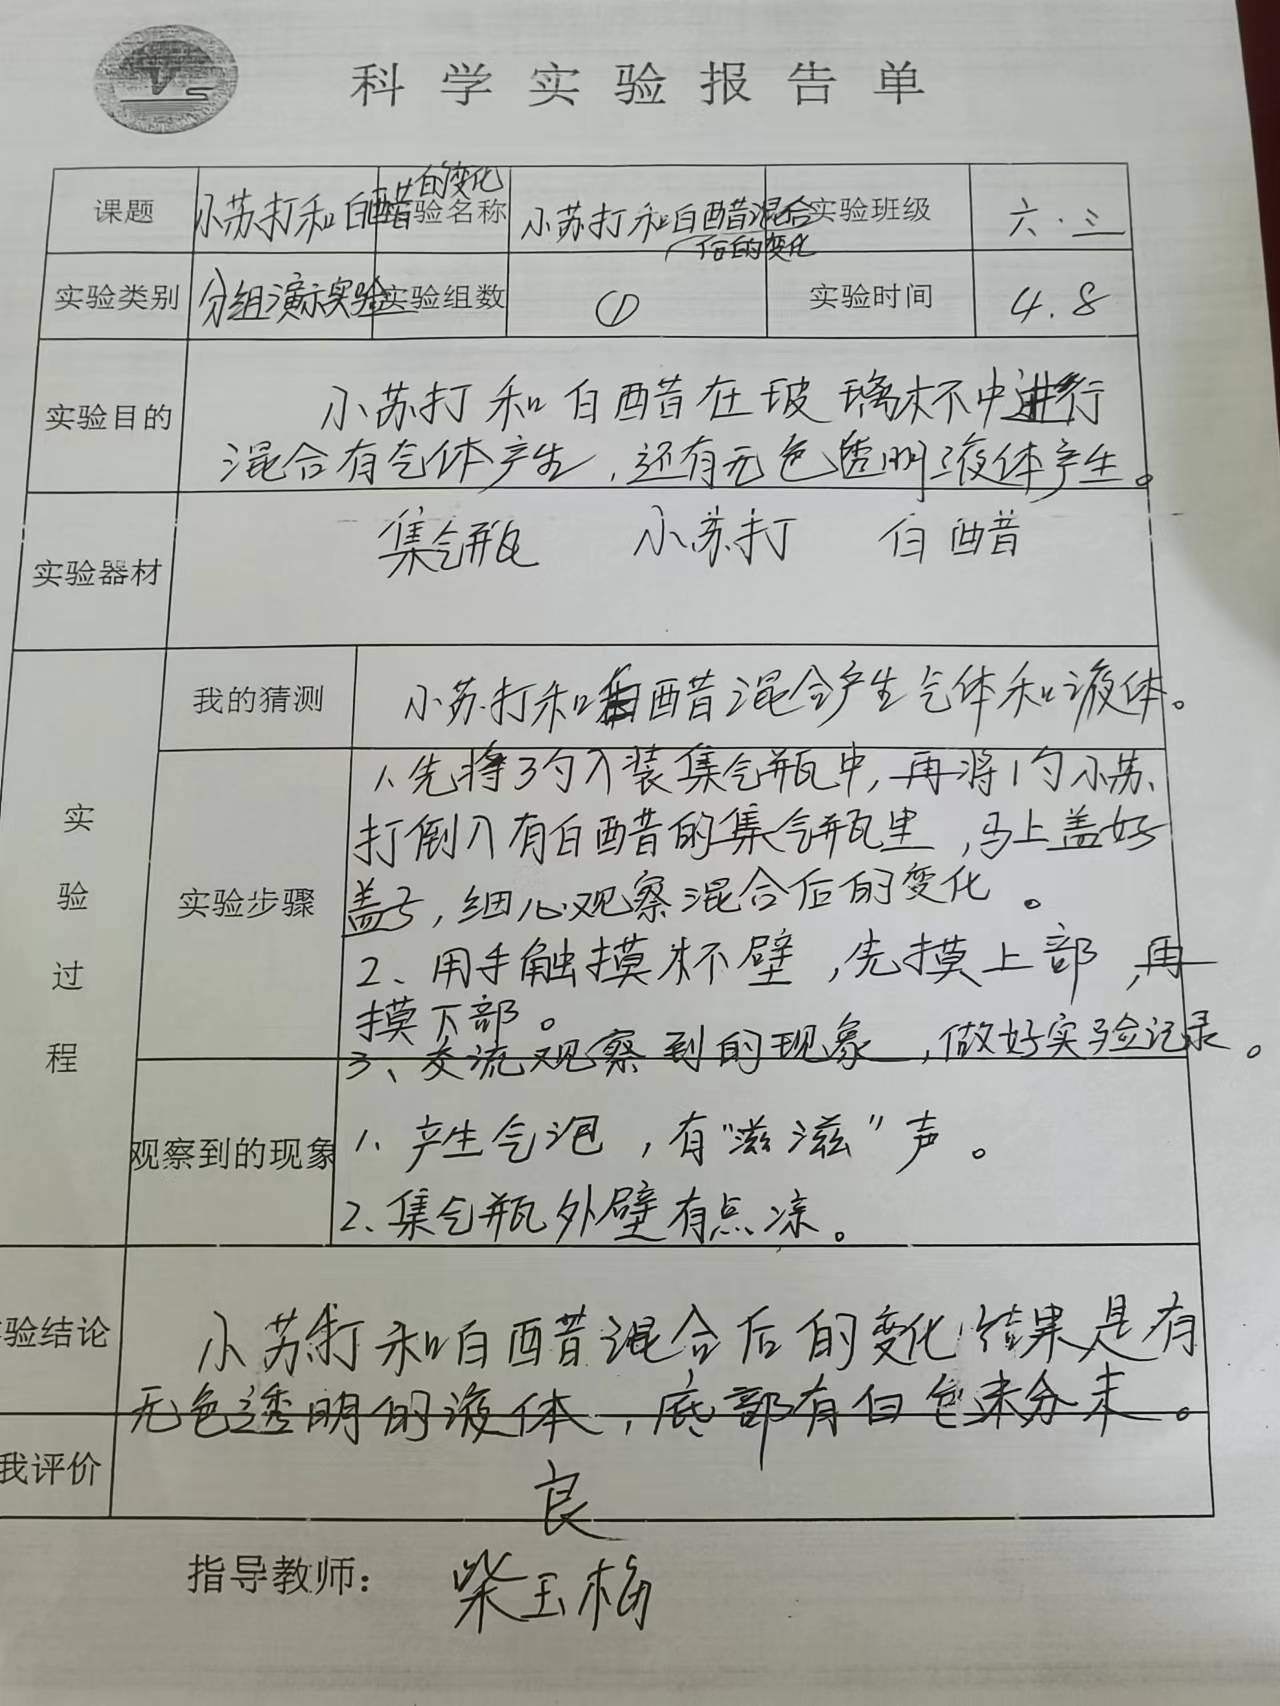 科学实验报告单
课题 小苏打和白醋的变化 实验名称 小苏打和白醋混合后的变化 实验班级 六·三
实验类别 分组演示实验 实验组数 ① 实验时间 4.8
实验目的 小苏打和白醋在玻璃杯中进行
混合有气体产生,还有无色透明液体产生。
实验器材 集气瓶 小苏打 白醋
实验过程
我的猜测 小苏打和白醋混合产生气体和液体。
实验步骤
1、先将3勺入装集气瓶中,再将1勺小苏
打倒入有白醋的集气瓶里,马上盖好
盖子,细心观察混合后的变化。
2、用手触摸杯壁,先摸上部,再
摸下部。
3、交流观察到的现象,做好实验记录。
观察到的现象
1、产生气泡,有"滋滋"声。
2、集气瓶外壁有点凉。
验结论 小苏打和白醋混合后的变化结果是有
无色透明的液体,底部有白色粉末。
我评价 良
指导教师: 柴玉梅